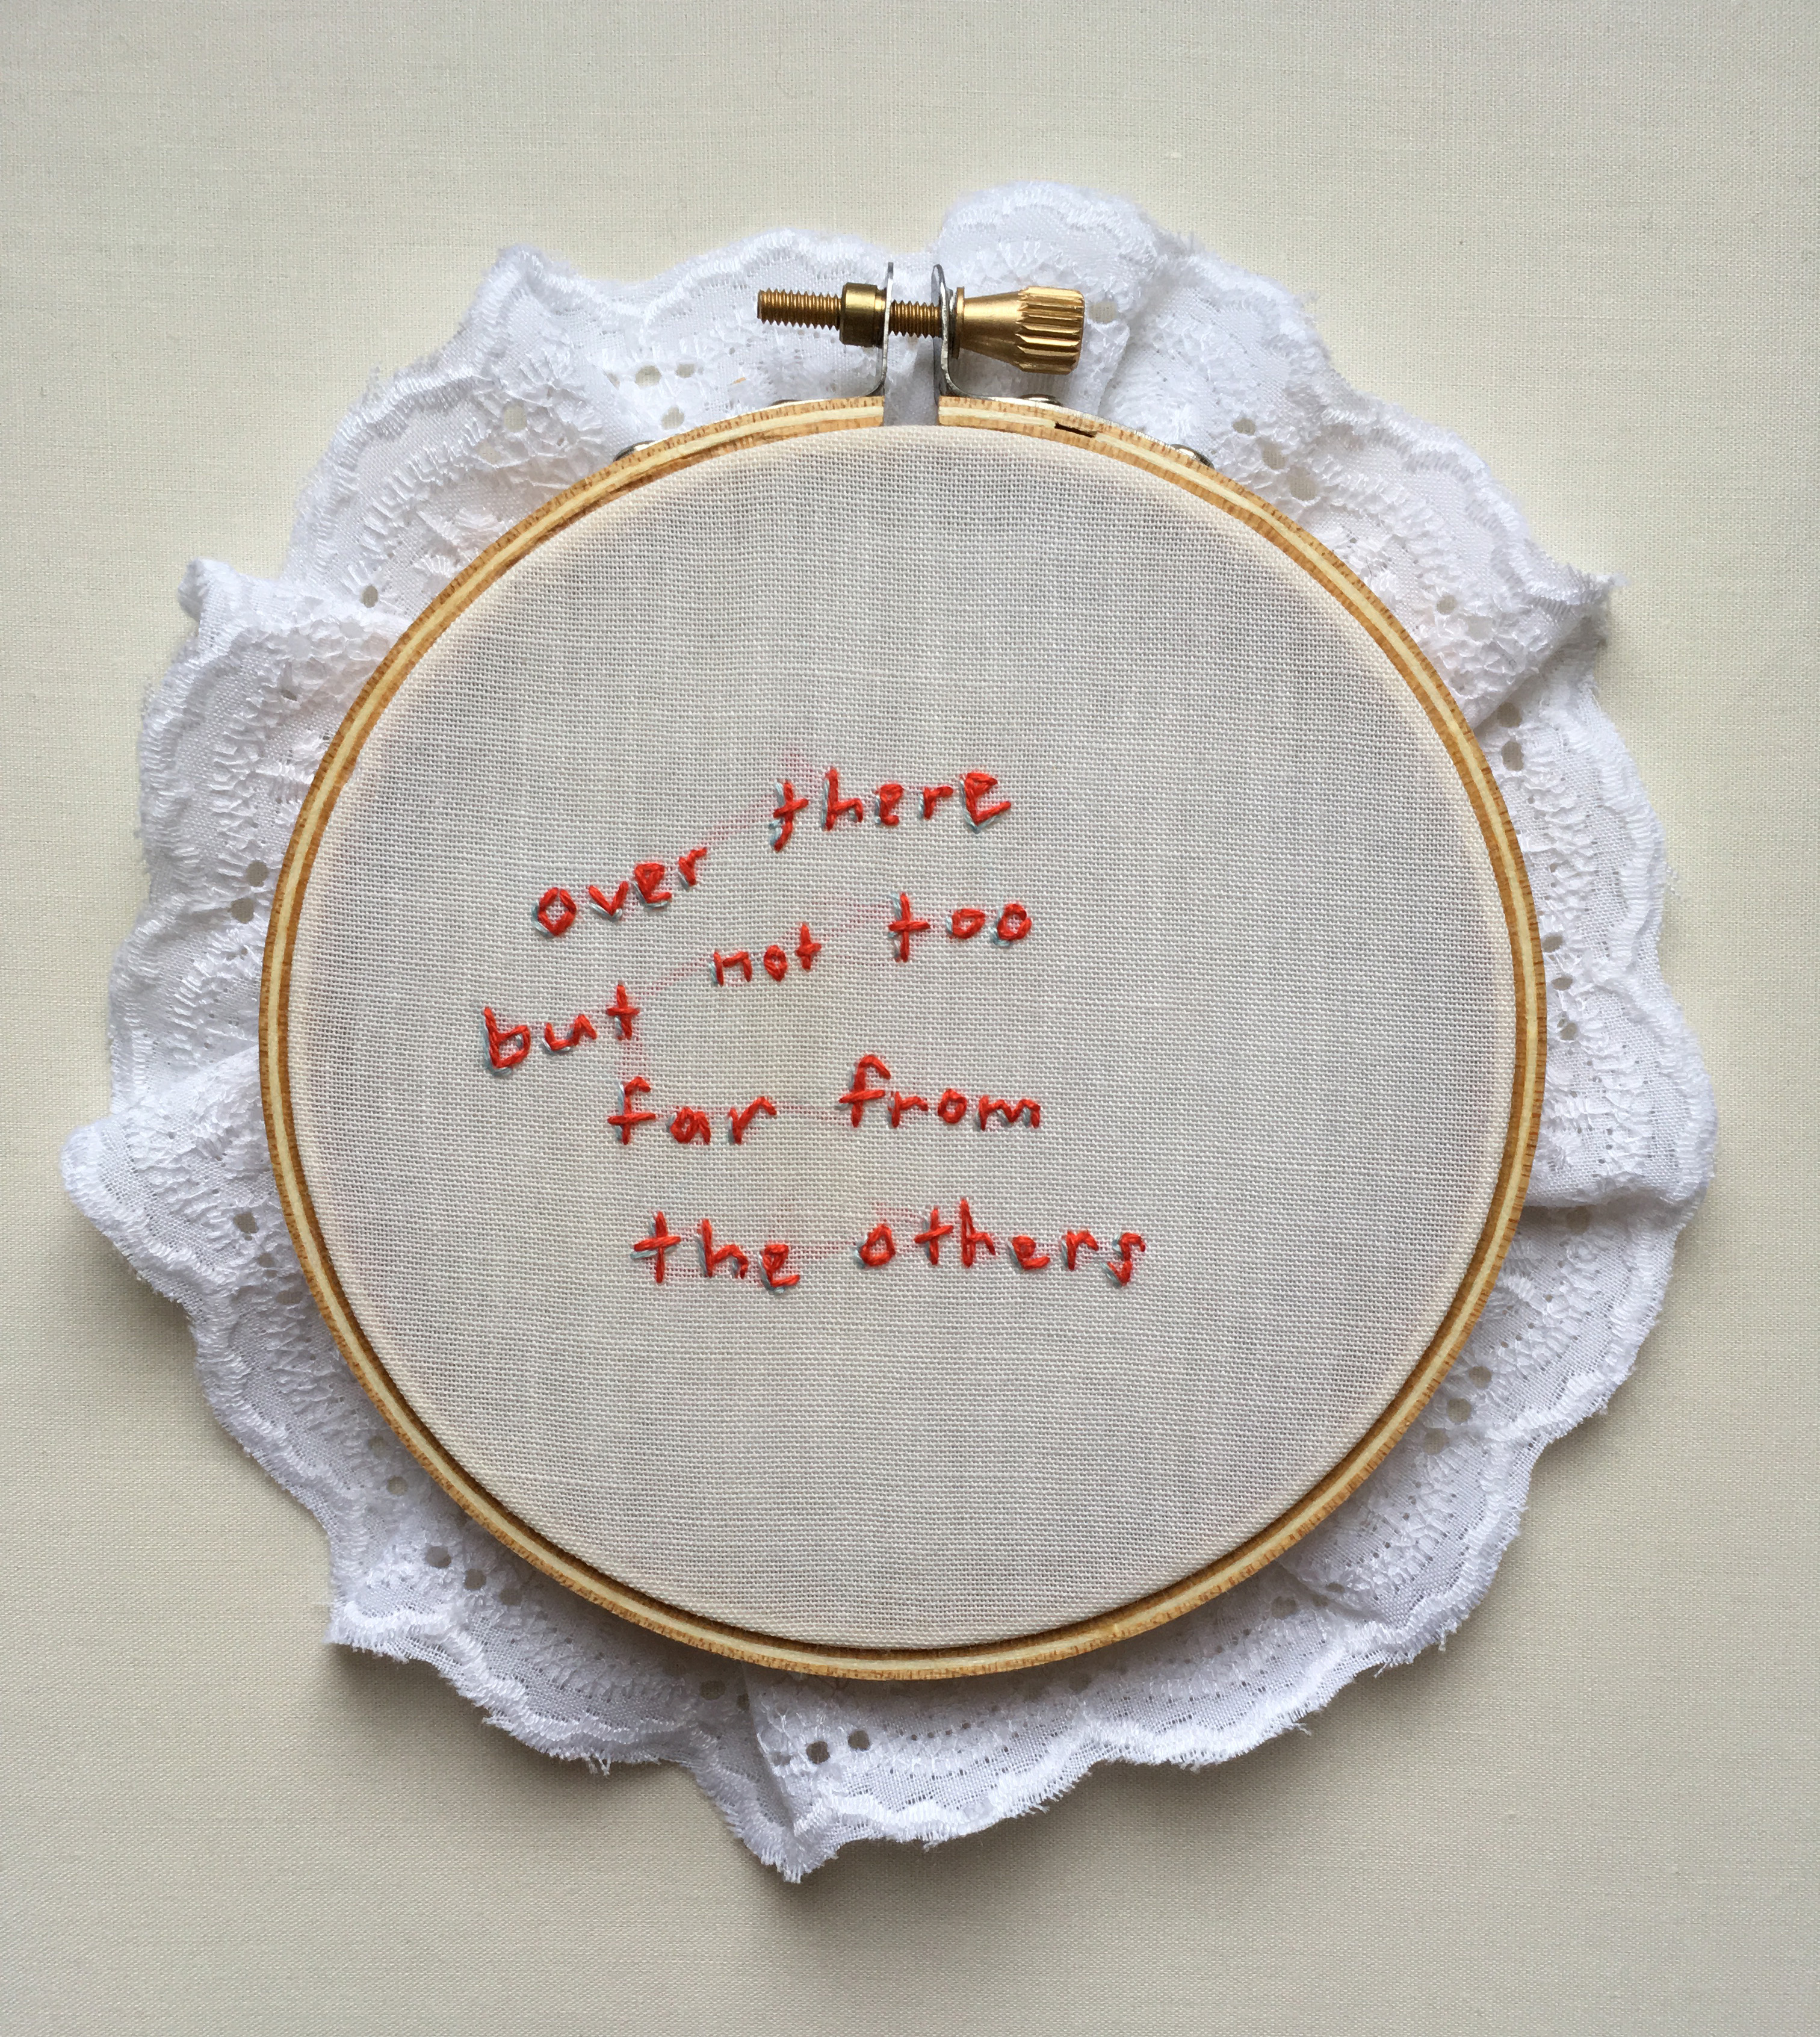 over there
but not too
far from
the others